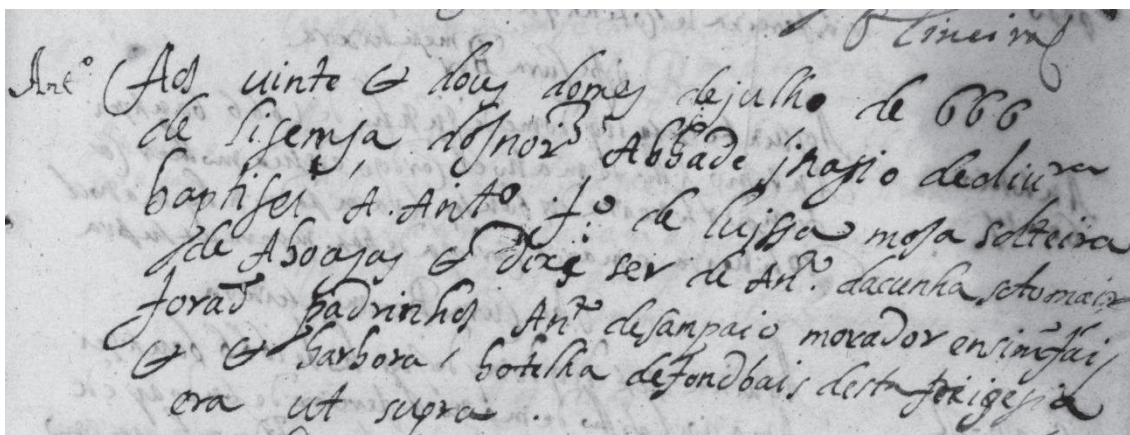 Antº Aos uinte & dous do mes de julho de 666
de lisemsa do snor Abbade
baptisei A. Antº fº de luissa mosa solteira
de Aboasas & dixe ser de Anº. da cunha soto maior
forão padrinhos Anº de sanpaio morador en
& & barbora botelha de fondbais desta
era ut supra.